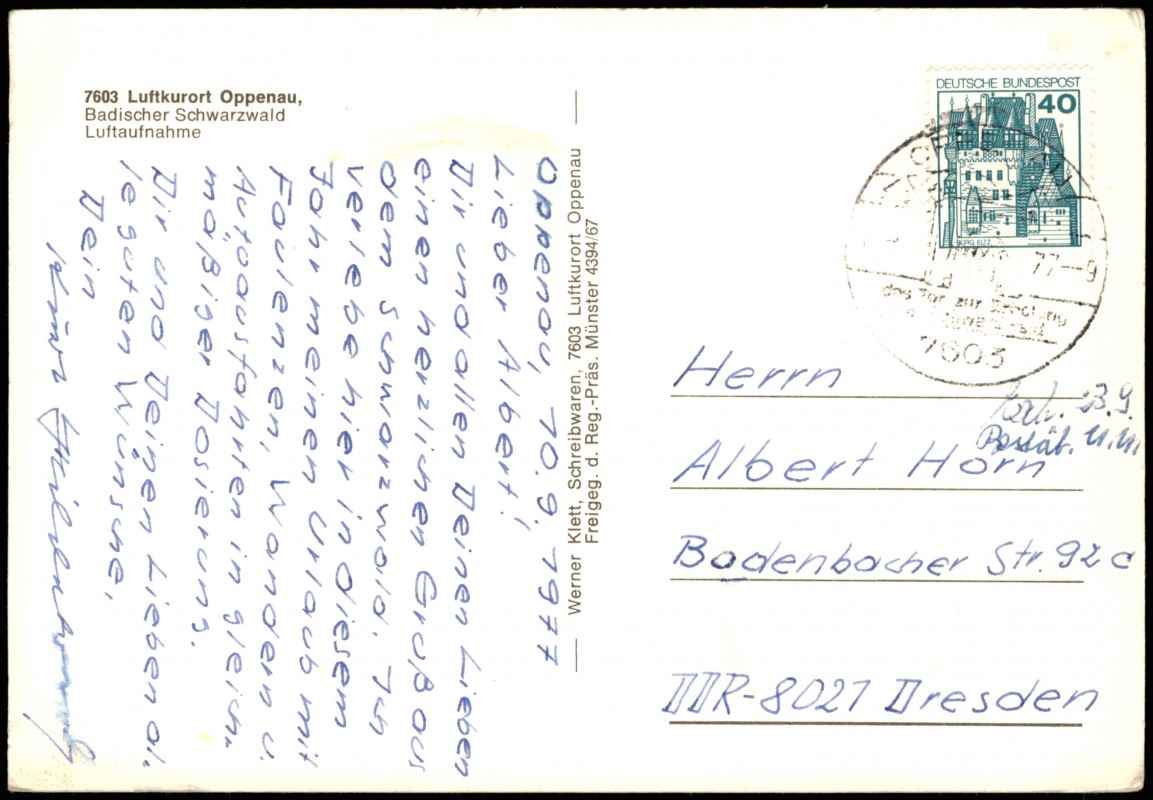 7603 Luftkurort Oppenau,
Badischer Schwarzwald
Luftaufnahme
Oppenau, 10.9.1977
Lieber Albert!
Dir und allen Deinen Lieben
einen herzlichen Gruß aus
dem Schwarzwald. Ich
verlebe hier in diesem
Jahr meinen Urlaub mit
Faulenzen, Wandern u.
Autoausfahrten in gleich-
mäßiger Dosierung.
Dir und Deinen Lieben al-
le guten Wünsche,
Dein
Werner Klett, Schreibwaren, 7603 Luftkurort Oppenau
Freigeg. d. Reg.-Präs. Münster 4394/67
DEUTSCHE BUNDESPOST
40
BURG ELTZ
77-9
7603
Herrn
Albert Horn
Bodenbacher Str. 92c
DDR-8021 Dresden